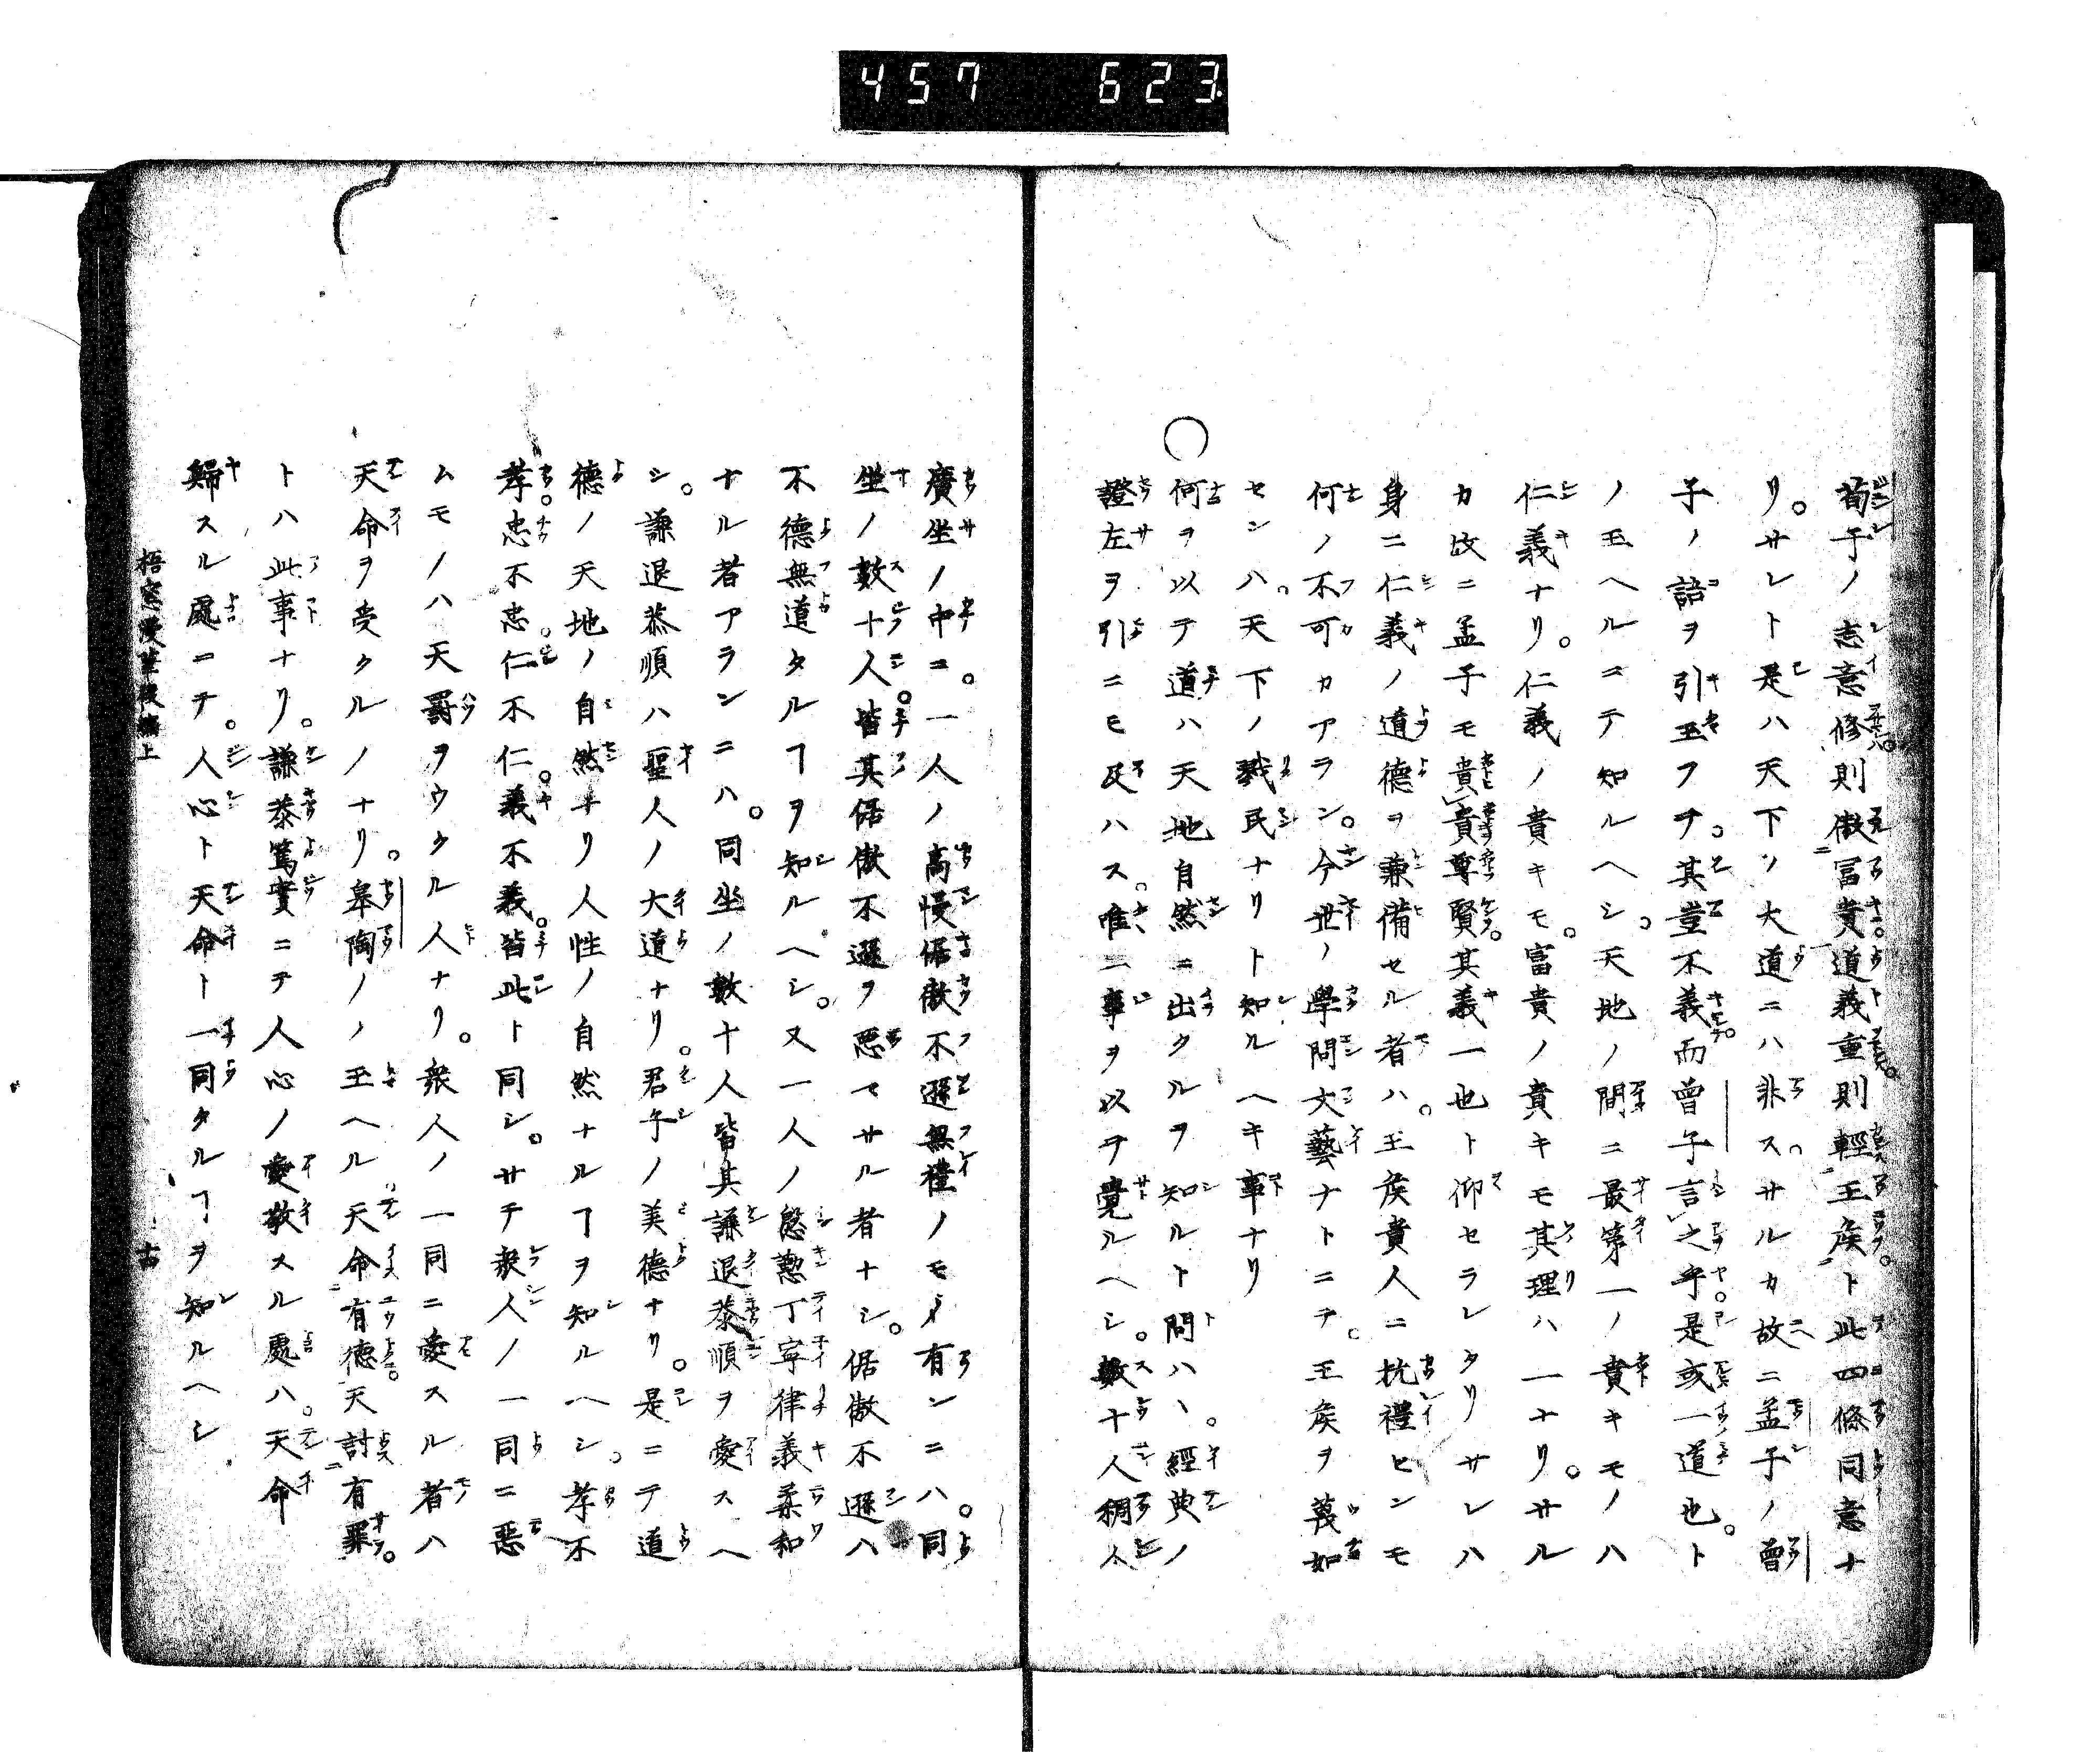 457 623
荀子ノ志意修則傲富貴道義重則輕王矦ト此四條同意ナ
リ。サレト是ハ天下ノ大道ニハ非ス。サルカ故ニ孟子ノ曾
子ノ語ヲ引玉フヲ。其豈不義而曾子言之乎。是或一道也。ト
ノ玉ヘルニテ知ルヘシ。天地ノ間ニ最第一ノ貴キモノハ
仁義ナリ。仁義ノ貴キモ。富貴ノ貴キモ其理ハ一ナリ。サル
カ故ニ孟子モ貴貴尊賢。其義一也ト仰セラレタリサレハ
身ニ仁義ノ道德ヲ兼備セル者ハ。王矦貴人ニ抗禮センモ
何ノ不可カアラン。今世ノ學問文藝ナトニテ。王矦ヲ蔑如
センハ。天下ノ戮民ナリト知ルヘキ事ナリ
○何ヲ以テ道ハ天地自然ニ出タルヲ知ルト問ハヽ。經典ノ
證左ヲ引ニモ及ハス。唯一事ヲ以テ覺ルヘシ。數十人稠人
廣坐ノ中ニ。一人ノ高慢倨傲不遜無禮ノモノ有ンニハ。同
坐ノ數十人。皆其倨傲不遜ヲ惡マサル者ナシ。倨傲不遜ハ
不德無道タルヿヲ知ルヘシ。又一人ノ慇懃丁寧律義柔和
ナル者アランニハ。同坐ノ數十人皆其謙退恭順ヲ愛スヘ
シ。謙退恭順ハ聖人ノ大道ナリ。君子ノ美德ナリ。是ニテ道
德ノ天地ノ自然ナリ人性ノ自然ナルヿヲ知ルヘシ。孝不
孝。忠不忠。仁不仁。義不義。皆此ト同シ。サテ衆人ノ一同ニ惡
ムモノハ天罰ヲウクル人ナリ。衆人ノ一同ニ愛スル者ハ
天命ヲ受クルノナリ。皋陶ノノ玉ヘル天命有德。天討有罪。
トハ此事ナリ。謙恭篤實ニテ人心ノ愛敬スル處ハ。天命
歸スル處ニテ。人心ト天命ト一同タルヿヲ知ルヘシ
梧窓漫筆後編上 十四